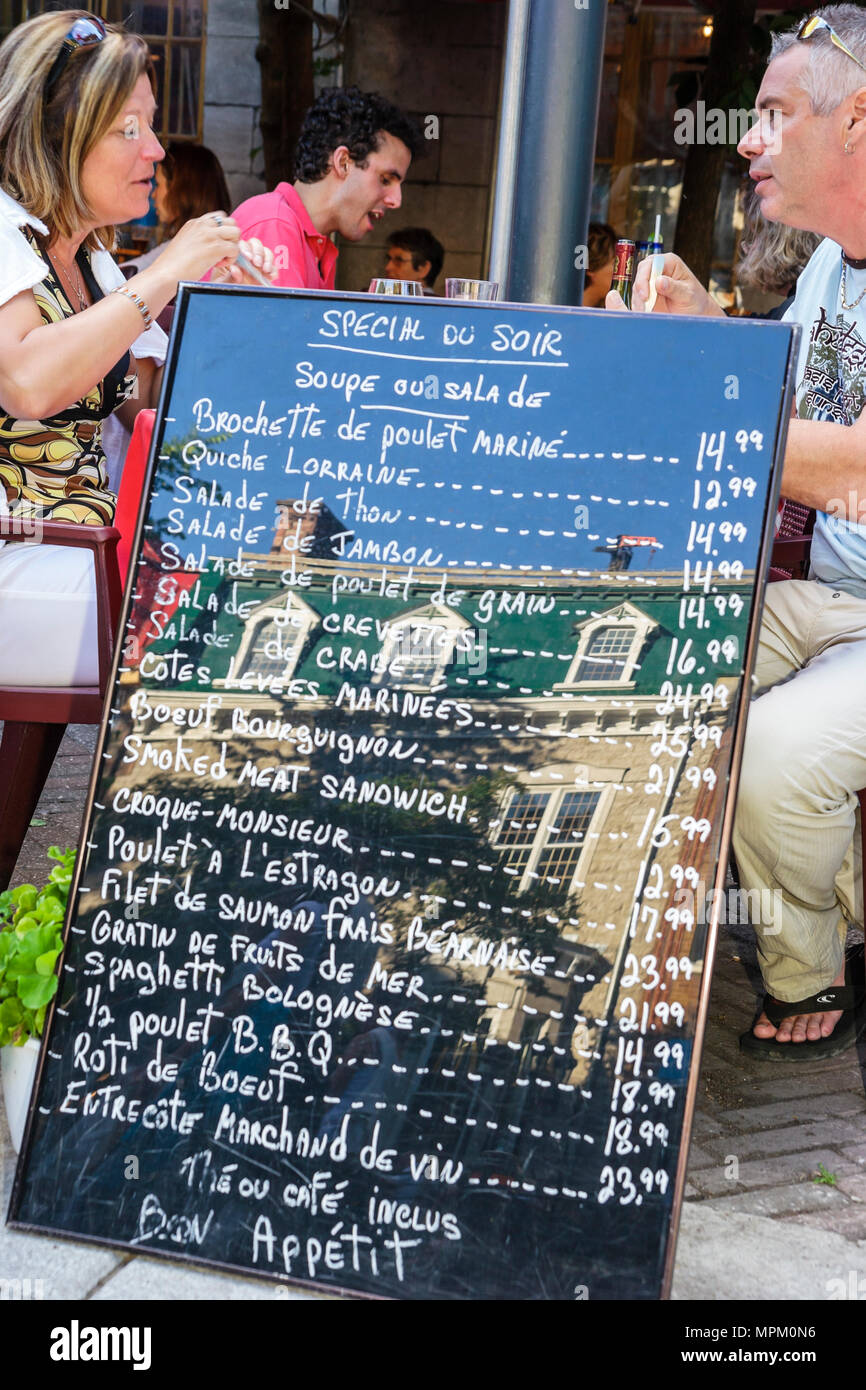 SPECIAL DU SOIR
SOUPE OU SALADE
- BROCHETTE DE POULET MARINÉ 14.99
- QUICHE LORRAINE 12.99
- SALADE DE THON 14.99
- SALADE DE JAMBON 14.99
- SALADE DE POULET DE GRAIN 14.99
- SALADE DE CREVETTES 16.99
- SALADE DE CRABE 24.99
- CÔTES LEVÉES MARINÉES 25.99
- BOEUF BOURGUIGNON 21.99
- SMOKED MEAT SANDWICH 15.99
- CROQUE-MONSIEUR 12.99
- POULET À L'ESTRAGON 17.99
- FILET DE SAUMON FRAIS BÉARNAISE 23.99
- GRATIN DE FRUITS DE MER 21.99
- SPAGHETTI BOLOGNÈSE 14.99
- 1/2 POULET B.B.Q. 18.99
- ROTI DE BOEUF 18.99
- ENTRECÔTE MARCHAND DE VIN 23.99
THÉ OU CAFÉ INCLUS
BON APPÉTIT
alamy
a
alamy
Image ID: MPM0N6
www.alamy.com